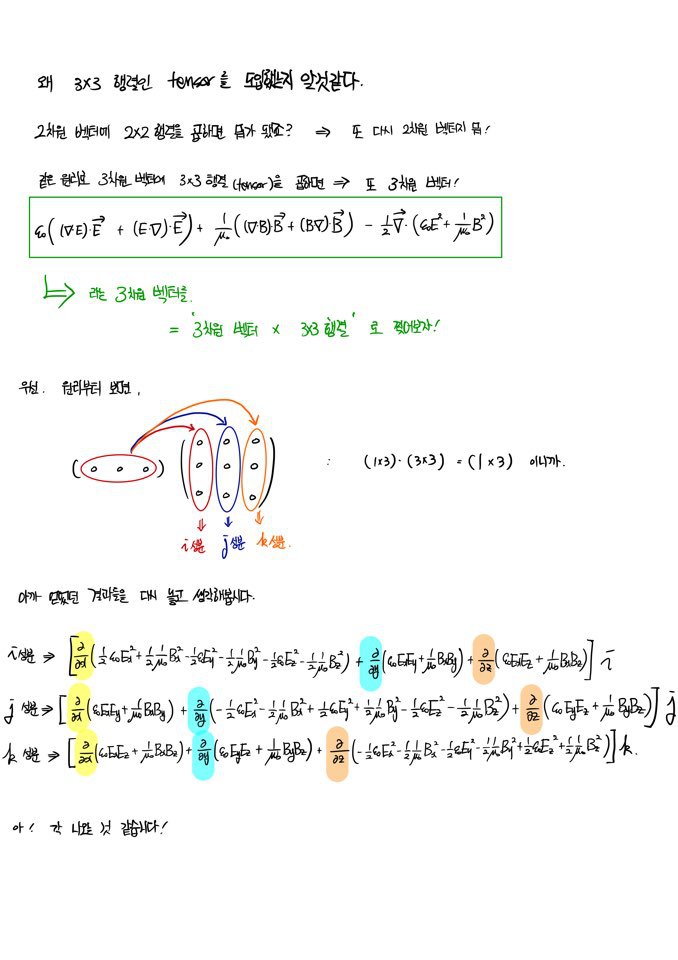 왜 3×3 행렬인 tensor를 도입했는지 알것같다.
2차원 벡터에 2×2 행렬을 곱하면 뭐가 됐죠? ⇒ 또 다시 2차원 벡터가 됨!
같은 원리로 3차원 벡터에 3×3 행렬(tensor)을 곱하면 ⇒ 또 3차원 벡터!
ε₀((∇·E)·E⃗ + (E·∇)·E⃗) + 1/μ₀((∇B)·B⃗ + (B∇)·B⃗) - 1/2 ∇⃗·(ε₀E² + 1/μ₀ B²)
라는 3차원 벡터를.
= '3차원 벡터 × 3×3 행렬' 로 찢어보자!
우선. 원리부터 보면,
( o o o ) ( o o o
o o o
o o o ) : (1×3)·(3×3) = (1×3) 이니까.
i성분 j성분 k성분.
아까 얻었던 결과들을 다시 놓고 생각해봅시다.
i성분 ⇒ [∂/∂x(1/2 ε₀Ex² + 1/2 1/μ₀ Bx² - 1/2 ε₀Ey² - 1/2 1/μ₀ By² - 1/2 ε₀Ez² - 1/2 1/μ₀ Bz²) + ∂/∂y(ε₀ExEy + 1/μ₀ BxBy) + ∂/∂z(ε₀ExEz + 1/μ₀ BxBz)] i
j성분 ⇒ [∂/∂x(ε₀ExEy + 1/μ₀ BxBy) + ∂/∂y(-1/2 ε₀Ex² - 1/2 1/μ₀ Bx² + 1/2 ε₀Ey² + 1/2 1/μ₀ By² - 1/2 ε₀Ez² - 1/2 1/μ₀ Bz²) + ∂/∂z(ε₀EyEz + 1/μ₀ ByBz)] j
k성분 ⇒ [∂/∂x(ε₀ExEz + 1/μ₀ BxBz) + ∂/∂y(ε₀EyEz + 1/μ₀ ByBz) + ∂/∂z(-1/2 ε₀Ex² - 1/2 1/μ₀ Bx² - 1/2 ε₀Ey² - 1/2 1/μ₀ By² + 1/2 ε₀Ez² + 1/2 1/μ₀ Bz²)] k.
아! 각 나오는 것 같습니다!